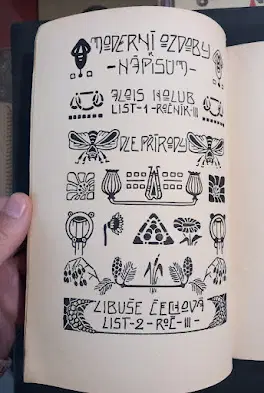 MODERNÍ OZDOBY
K
-NÁPISŮM-
ALOIS HOLUB
LIST-1-ROČNÍK-III
DLE PŘÍRODY
LIBUŠE ČECHOVÁ
LIST-2-ROČ-III-